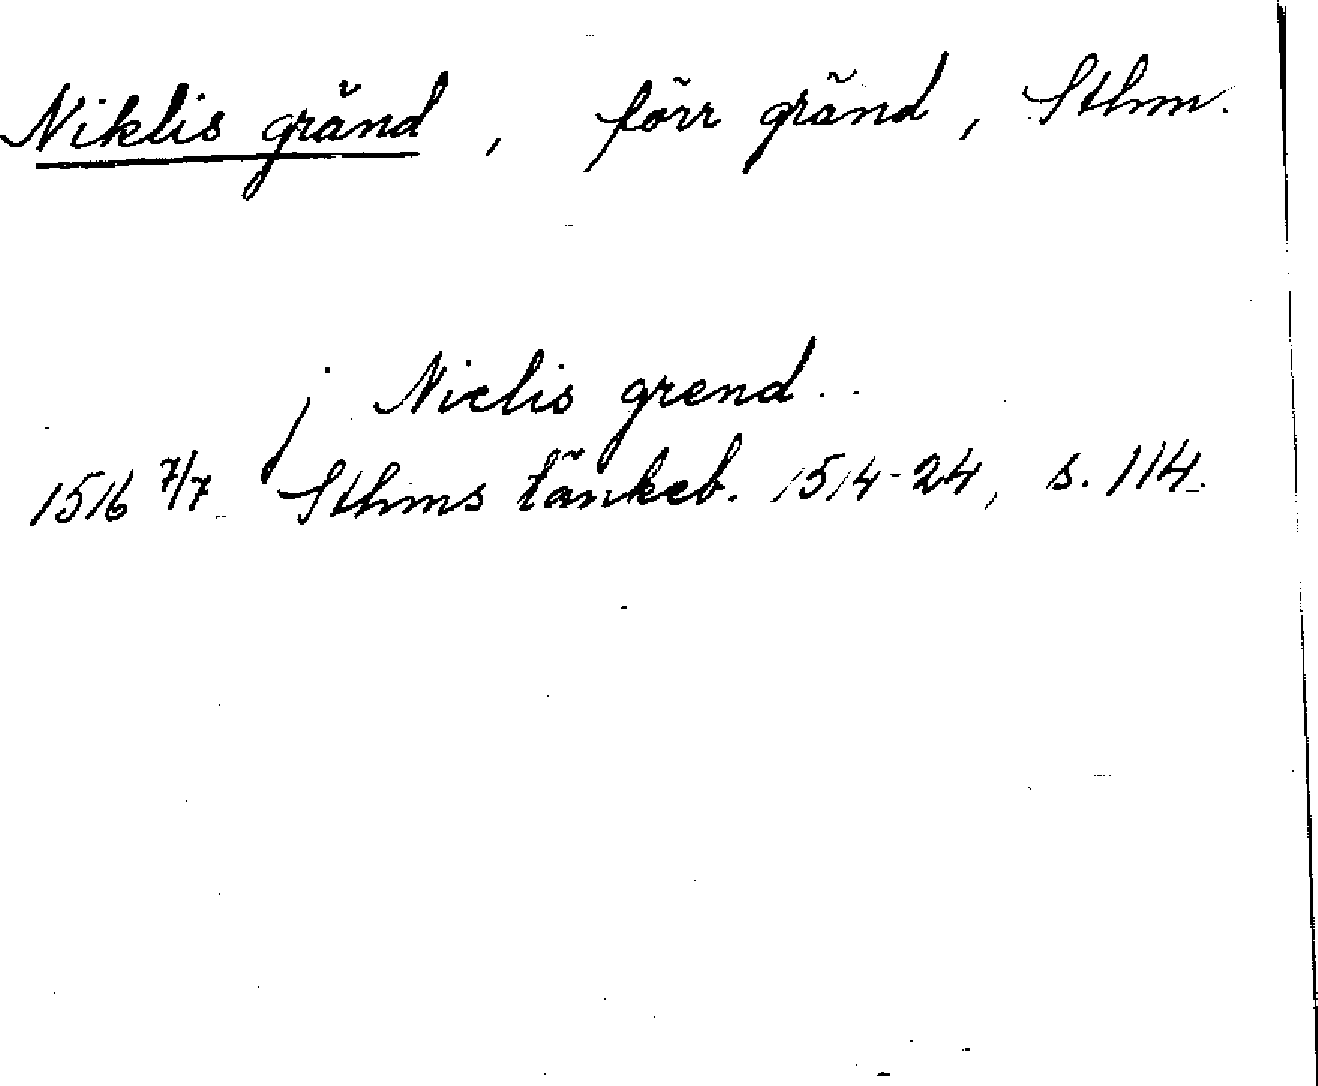 Niklis gränd, förr gränd, Sthm.
j Niclis grend.
1516 7/7 Sthms tänkeb. 1514-24, s. 114.